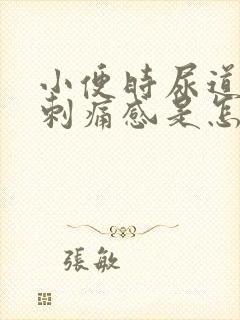 小便时尿道
刺痛感是怎
張敏